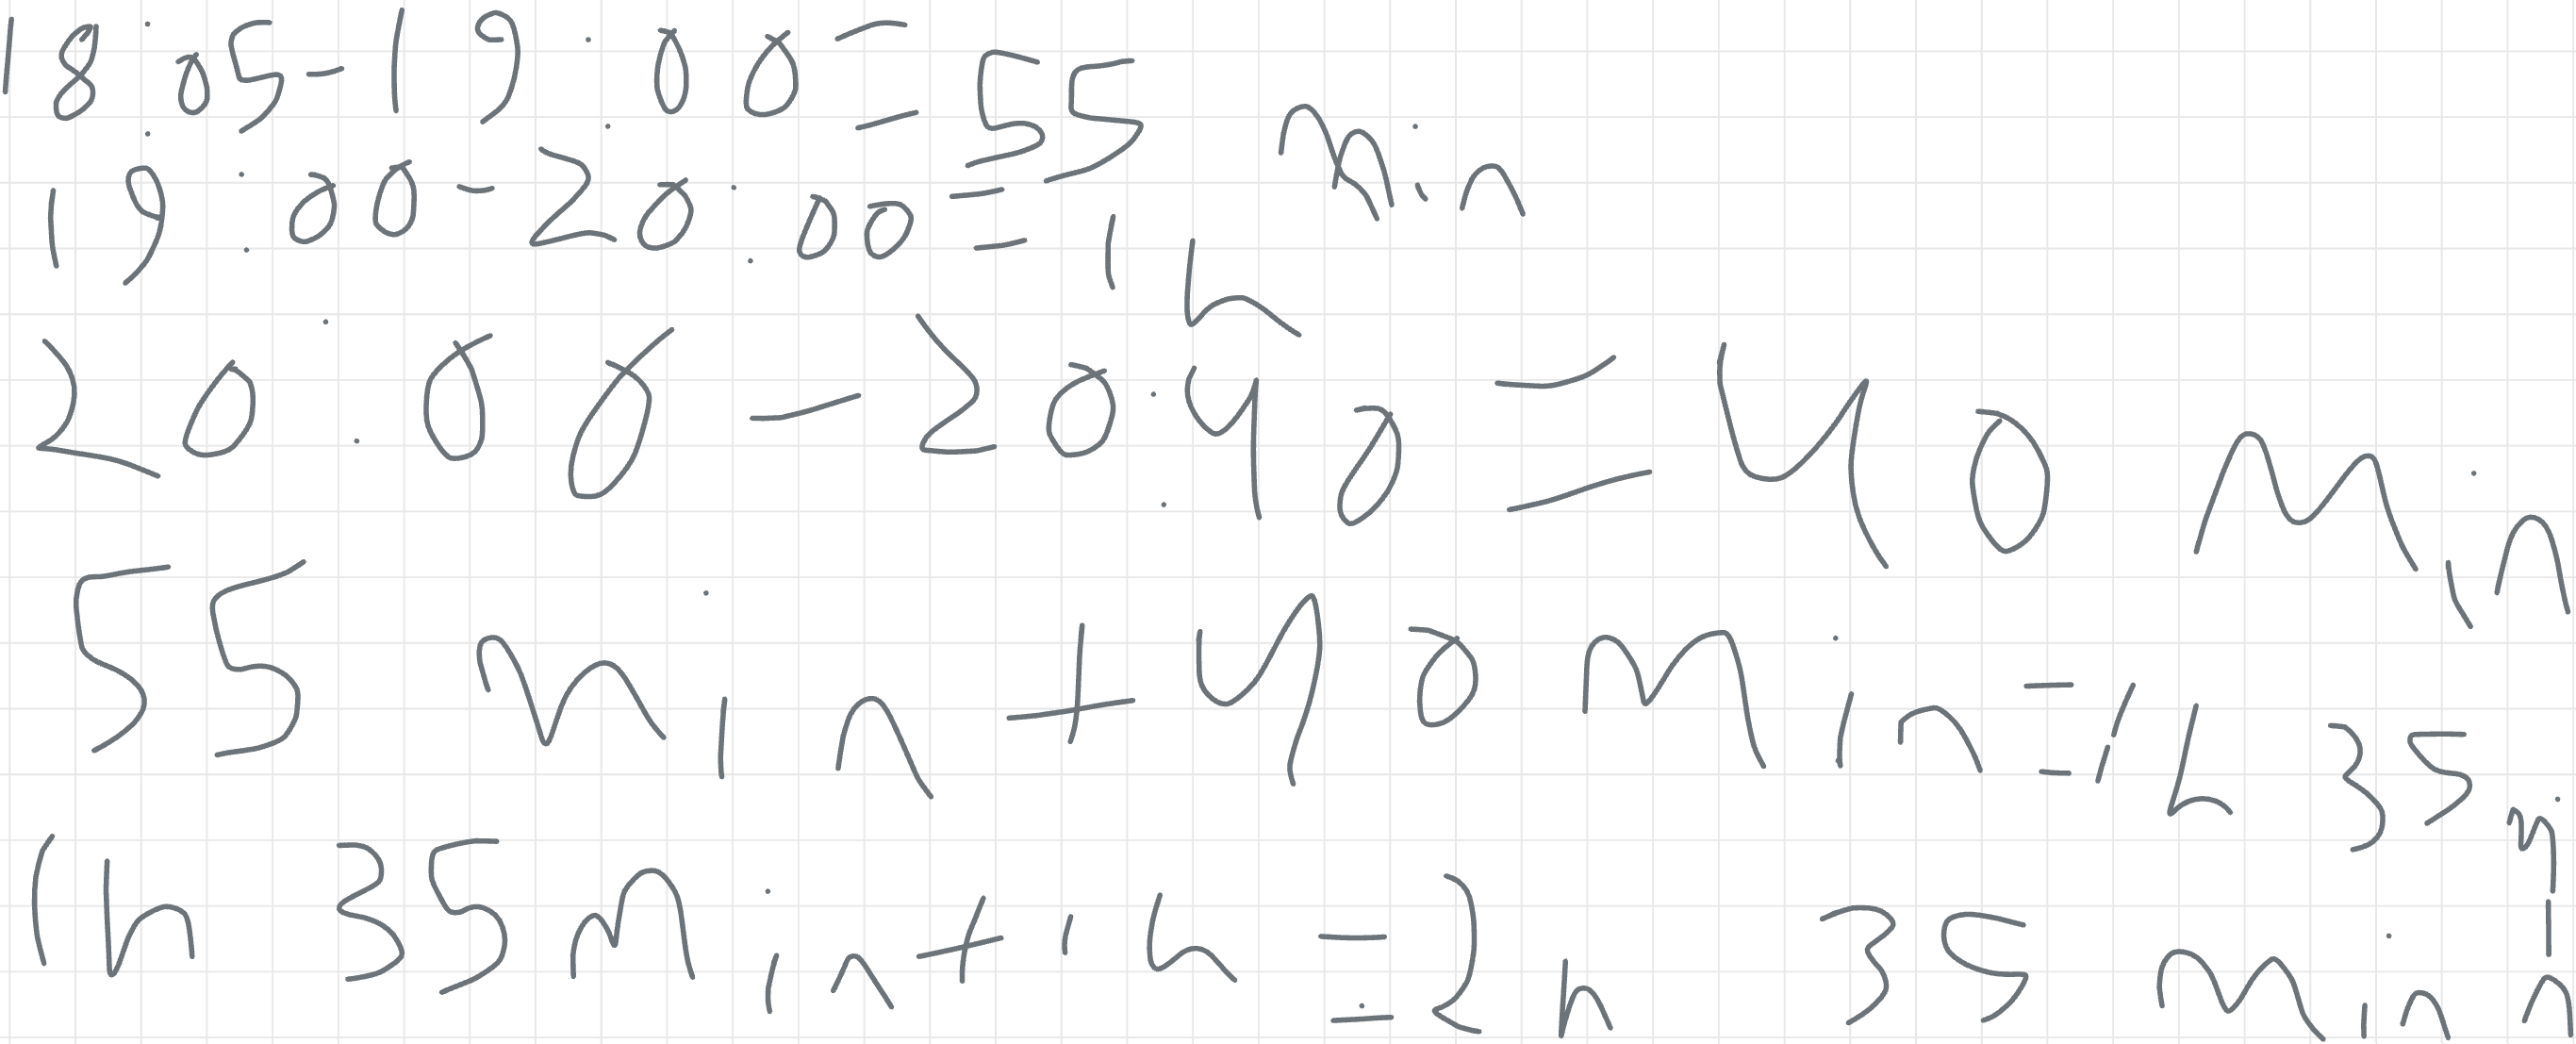 18:05-19:00=55 min
19:00-20:00=1h
20:00-20:40=40 min
55 min+40 min=1h 35 min
1h 35 min+1h=2h 35 min